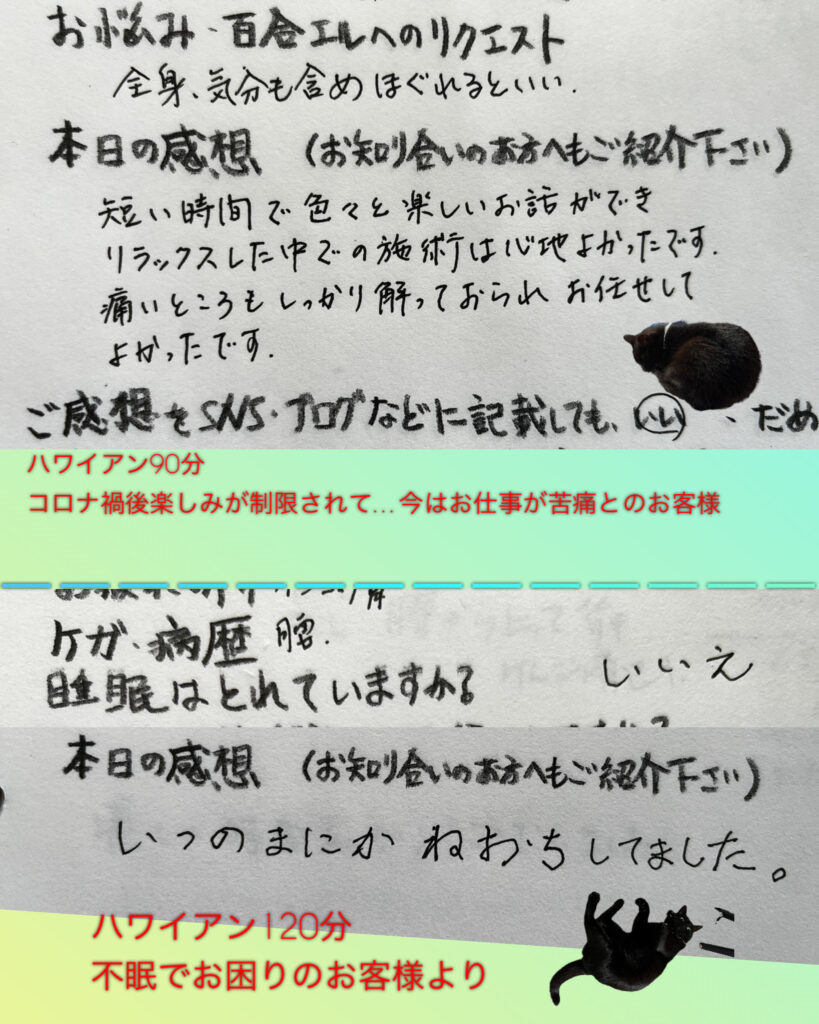 お悩み・百合エルへのリクエスト
全身、気分も含めほぐれるといい.
本日の感想 (お知り合いのお方へもご紹介下さい)
短い時間で色々と楽しいお話ができ
リラックスした中での施術は心地よかったです.
痛いところもしっかり解っておられ お任せして
よかったです.
ご感想をSNS・ブログなどに記載しても、いい 、だめ
ハワイアン90分
コロナ禍後楽しみが制限されて…今はお仕事が苦痛とのお客様
ケガ・病歴 腰.
睡眠はとれていますか? いいえ
本日の感想 (お知り合いのお方へもご紹介下さい)
いつのまにか ねおちしてました。
ハワイアン120分
不眠でお困りのお客様より